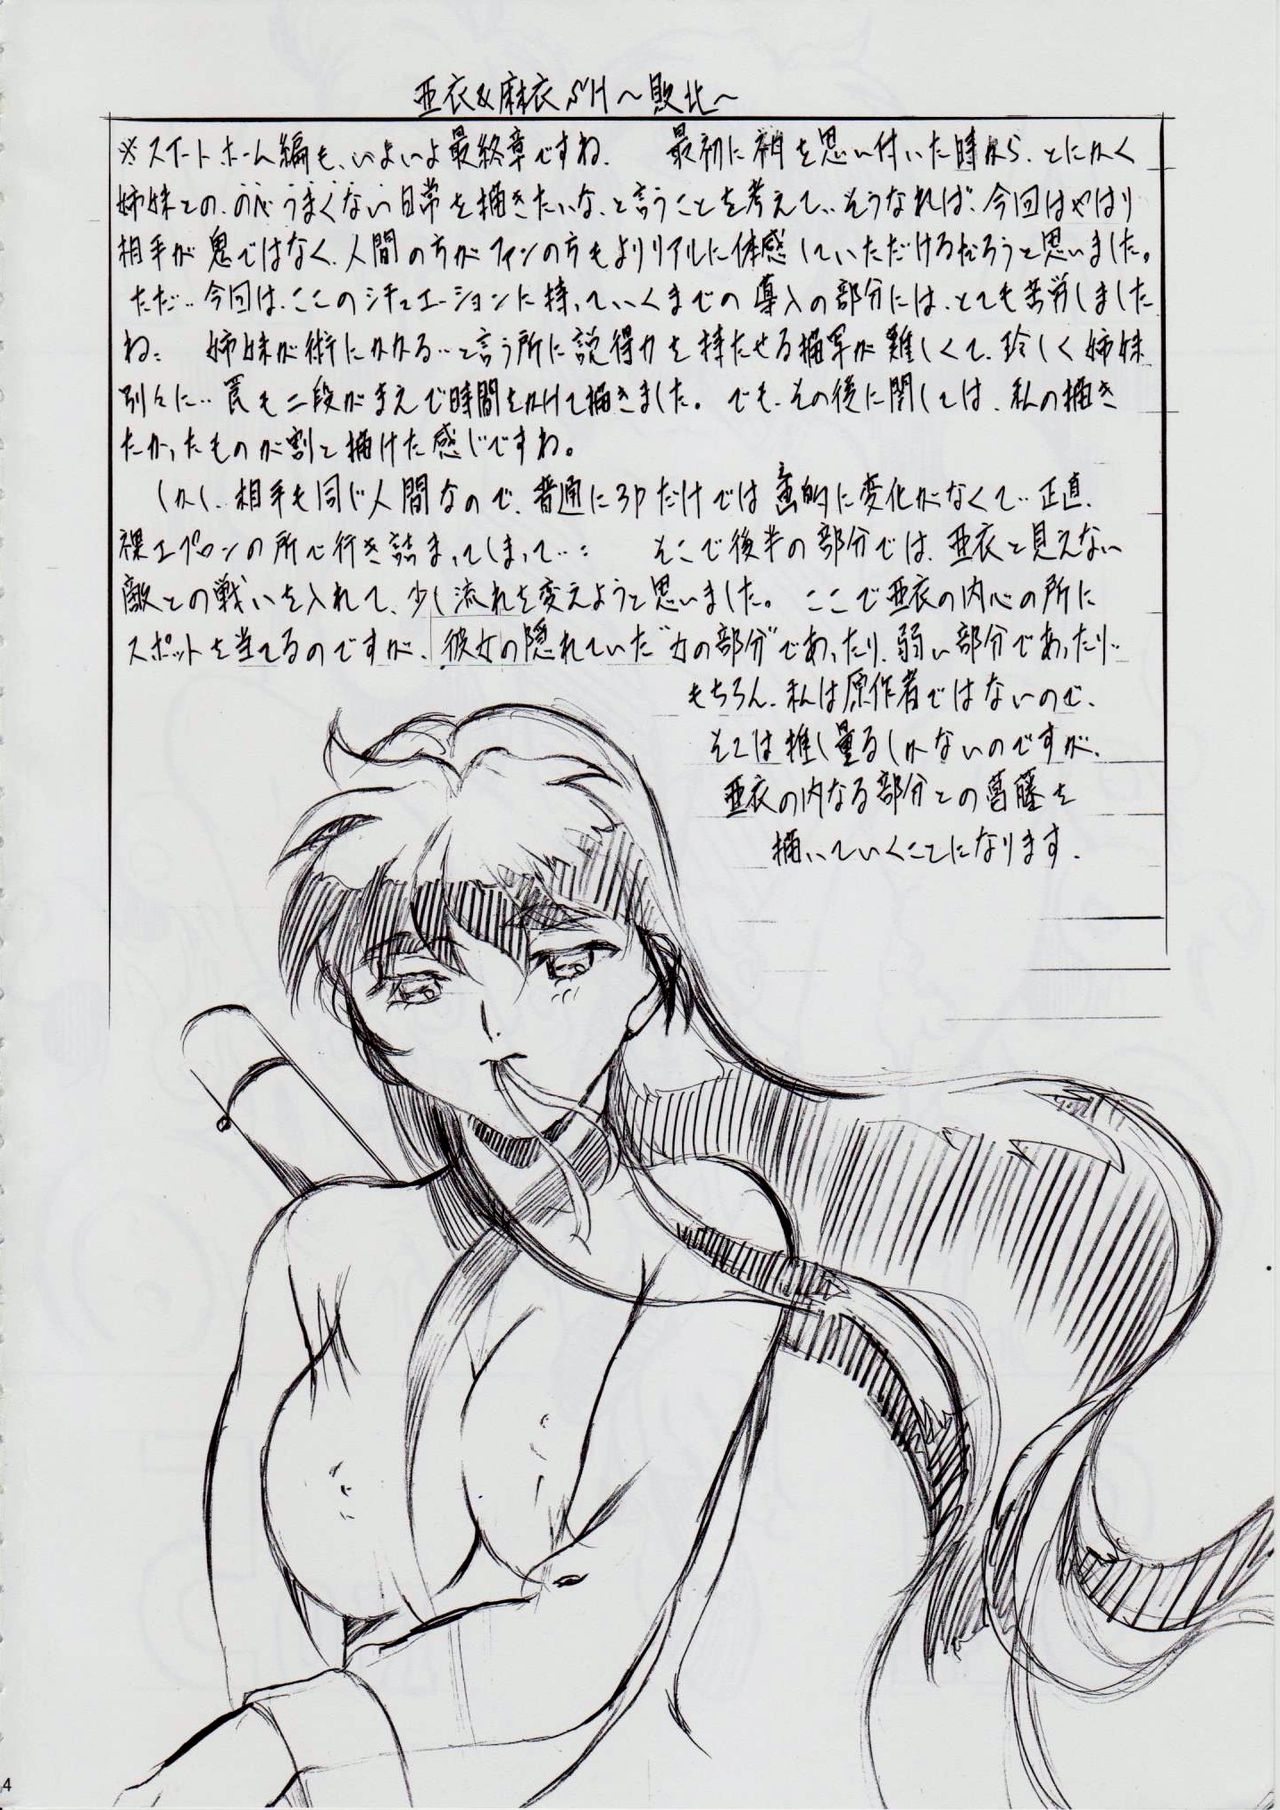 亜衣&麻衣SH〜敗北〜
※スイートホーム編も、いよいよ最終章ですね. 最初に を思い付いた時から、とにかく
姉妹との、 うまくない日常を描きたいな、と言うことを考えて‥そうなれば、今回はやはり
相手が鬼ではなく、人間の方がファンの方もよりリアルに体感していただけるだろうと思いました。
ただ‥今回は、ここのシチュエーションに持っていくまでの導入の部分には、とても苦労しました
ね: 姉妹が術にかかる‥と言う所に説得力を持たせる描写が難しくて、珍しく姉妹
別々に‥罠も二段がまえで時間をかけて描きました。でも、その後に関しては、私の描き
たかったものが割と描けた感じですね。
しかし、相手も同じ人間なので、普通に3Pだけでは画的に変化がなくて‥正直、
裸エプロンの所で行き詰まってしまって‥: そこで後半の部分では、亜衣と見えない
敵との戦いを入れて、少し流れを変えようと思いました。ここで亜衣の内心の所に
スポットを当てるのですが、彼女の隠れていた"女の部分"であったり、弱い部分であったり‥
もちろん、私は原作者ではないので、
そこは推し量るしかないのですが、
亜衣の内なる部分との葛藤を
描いていくことになります.
4